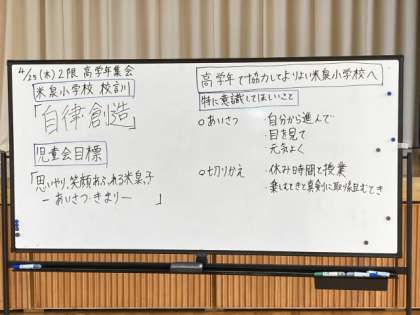 4/25(木) 2限 高学年集会
米泉小学校 校訓
「自律・創造」
児童会目標
「思いやり、笑顔あふれる米泉っ子
ーあいさつ・きまりー 」
高学年で協力してよりよい米泉小学校へ
特に意識してほしいこと
○あいさつ ・自分から進んで
・目を見て
・元気よく
○切りかえ ・休み時間と授業
・楽しむときと真剣に取り組むとき